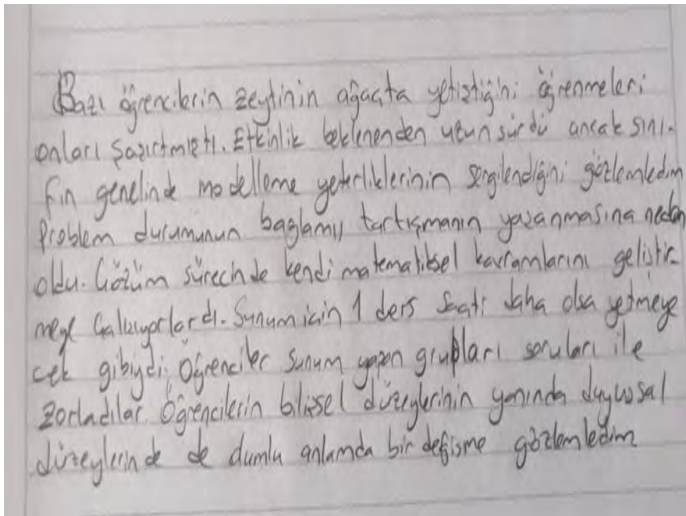 Bazı öğrencilerin zeytinin ağaçta yetiştiğini öğrenmeleri
onları şaşırtmıştı. Etkinlik beklenenden uzun sürdü ancak sını-
fın genelinde modelleme yeterliklerinin sergilendiğini gözlemledim
Problem durumunun bağlamı, tartışmanın yaşanmasına neden
oldu. Çözüm sürecinde kendi matematiksel kavramlarını geliştir-
meye çalışıyorlardı. Sunum için 1 ders saati daha olsa yetmeye
cek gibiydi. Öğrenciler sunum yapan grupları soruları ile
zorladılar. Öğrencilerin bilişsel düzeylerinin yanında duyuşsal
düzeylerinde de olumlu anlamda bir değişme gözlemledim